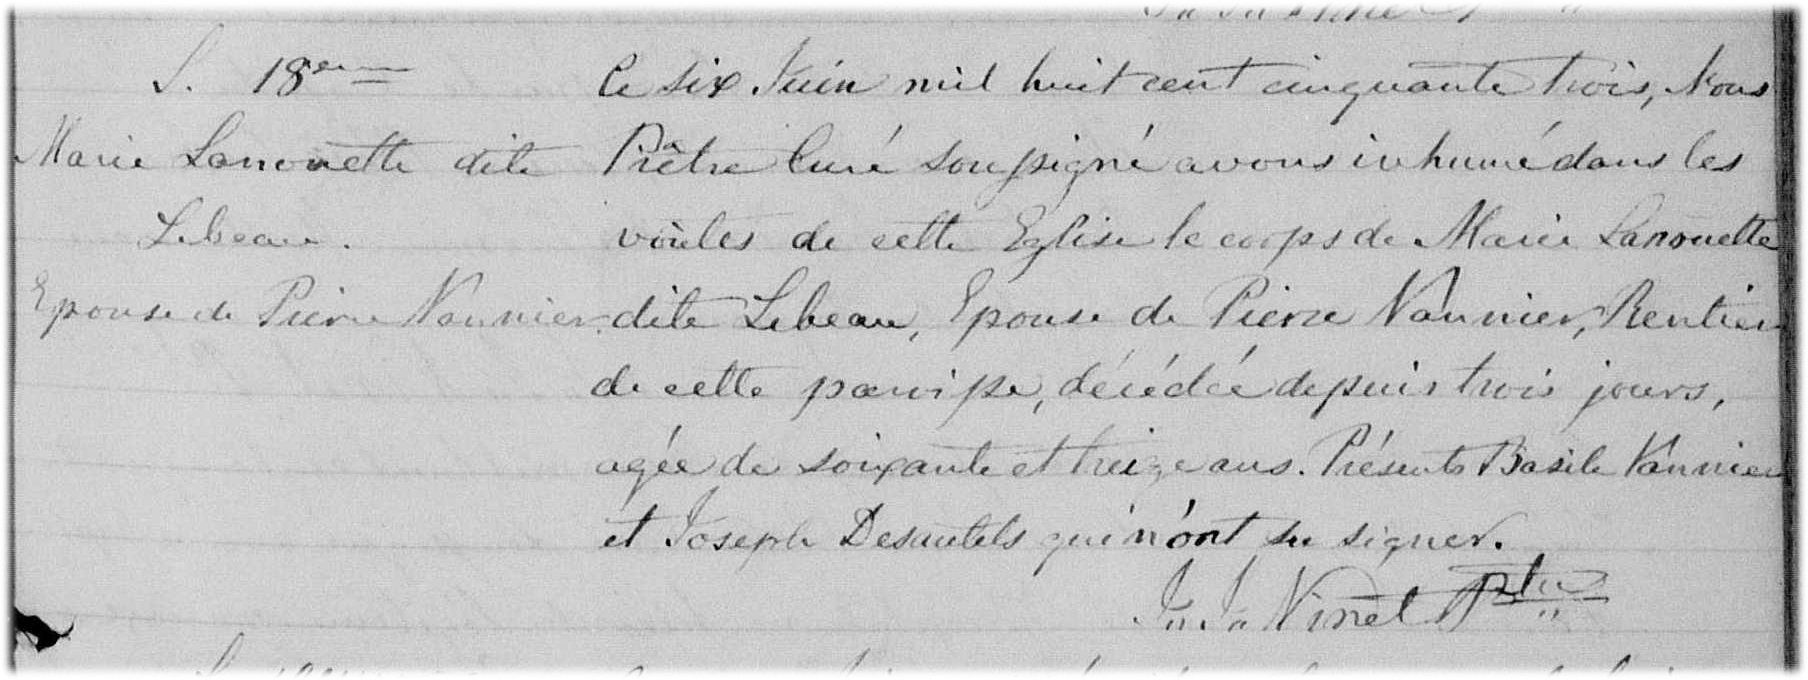 S. 18eme
Marie Lanouette dite
Lebeau.
Epouse de Pierre Vannier.
Ce six Juin mil huit cent cinquante trois, Nous
Prêtre Curé soussigné avons inhumé dans les
voûtes de cette Eglise le corps de Marie Lanouette
dite Lebeau, Epouse de Pierre Vannier, Rentier
de cette paroisse, décédée depuis trois jours,
agée de soixante et treize ans. Présents Basile Vannier
et Joseph Desautels qui n'ont su signer.
Jn Jh Vinet Ptre